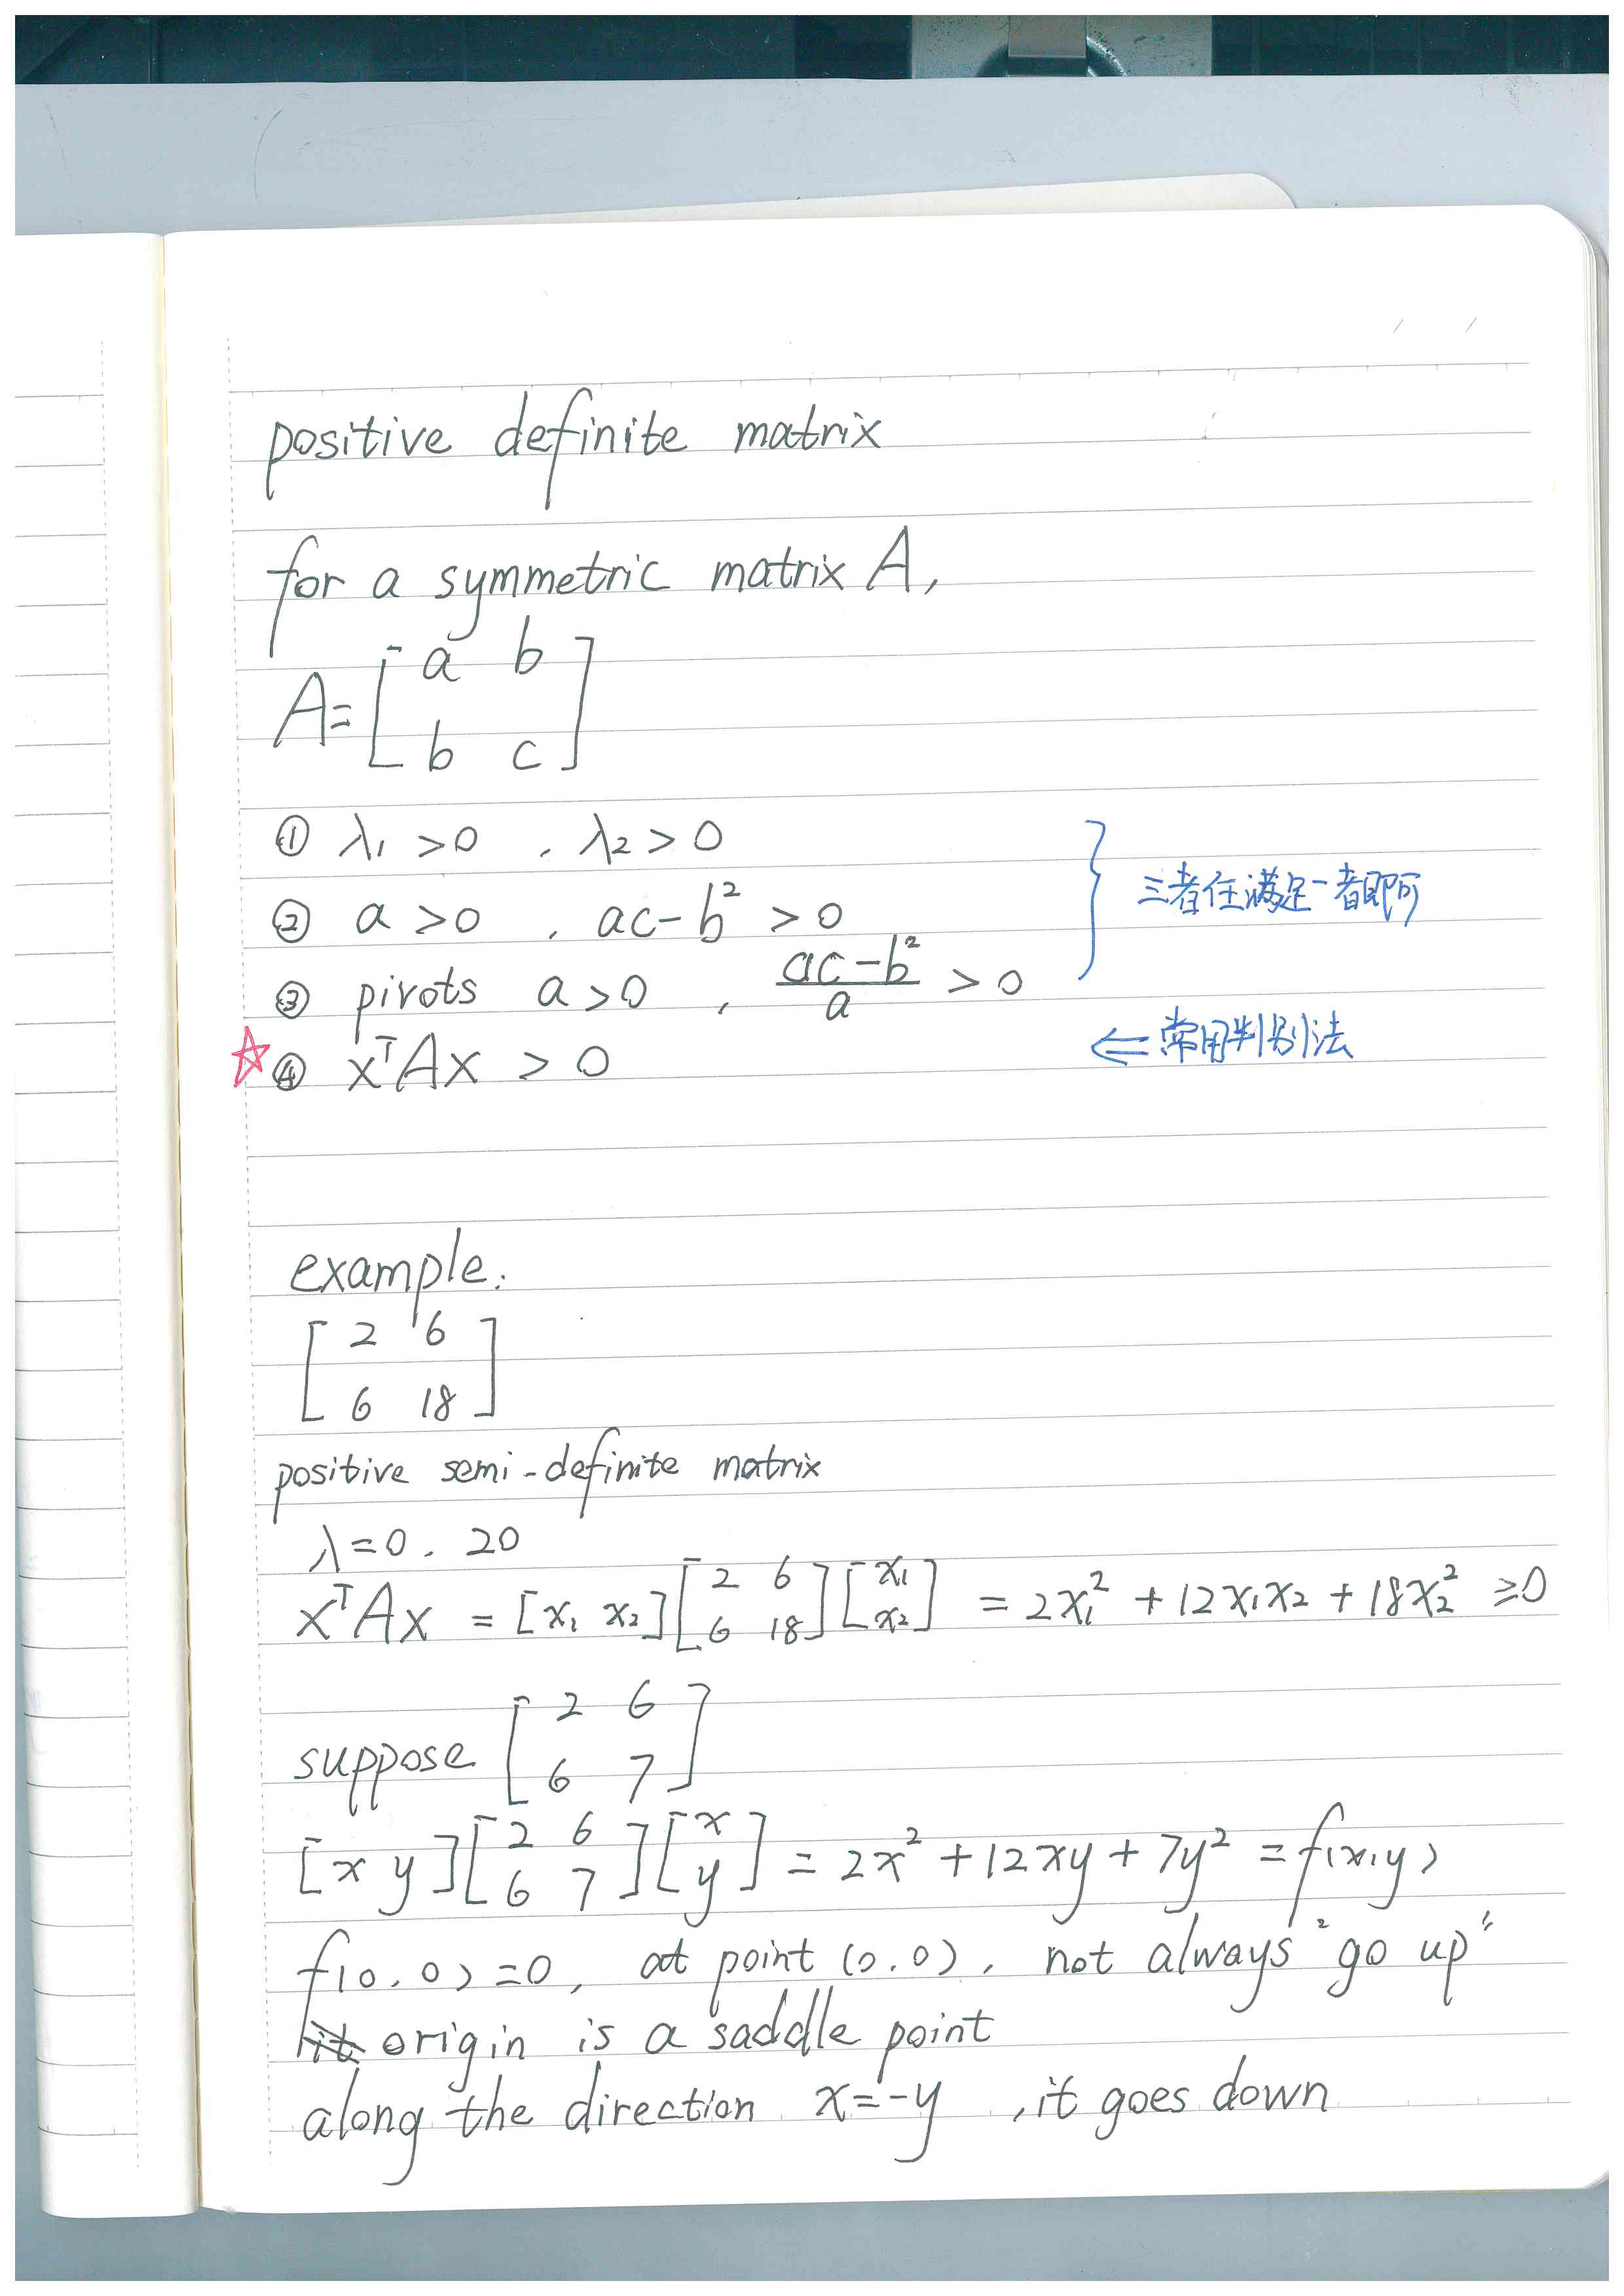 positive definite matrix
for a symmetric matrix A,
A = [ a b
b c ]
① λ₁ > 0 , λ₂ > 0
② a > 0 , ac - b² > 0
三者任满足一者即可
③ pivots a > 0 , (ac - b²)/a > 0
☆ ④ xᵀAx > 0 ⇐ 常用判别法
example:
[ 2 6
6 18 ]
positive semi-definite matrix
λ = 0, 20
xᵀAx = [x₁ x₂] [2 6; 6 18] [x₁; x₂] = 2x₁² + 12x₁x₂ + 18x₂² ≥ 0
suppose [ 2 6
6 7 ]
[x y] [2 6; 6 7] [x; y] = 2x² + 12xy + 7y² = f(x,y)
f(0,0) = 0, at point (0,0), not always "go up"
origin is a saddle point
along the direction x = -y , it goes down